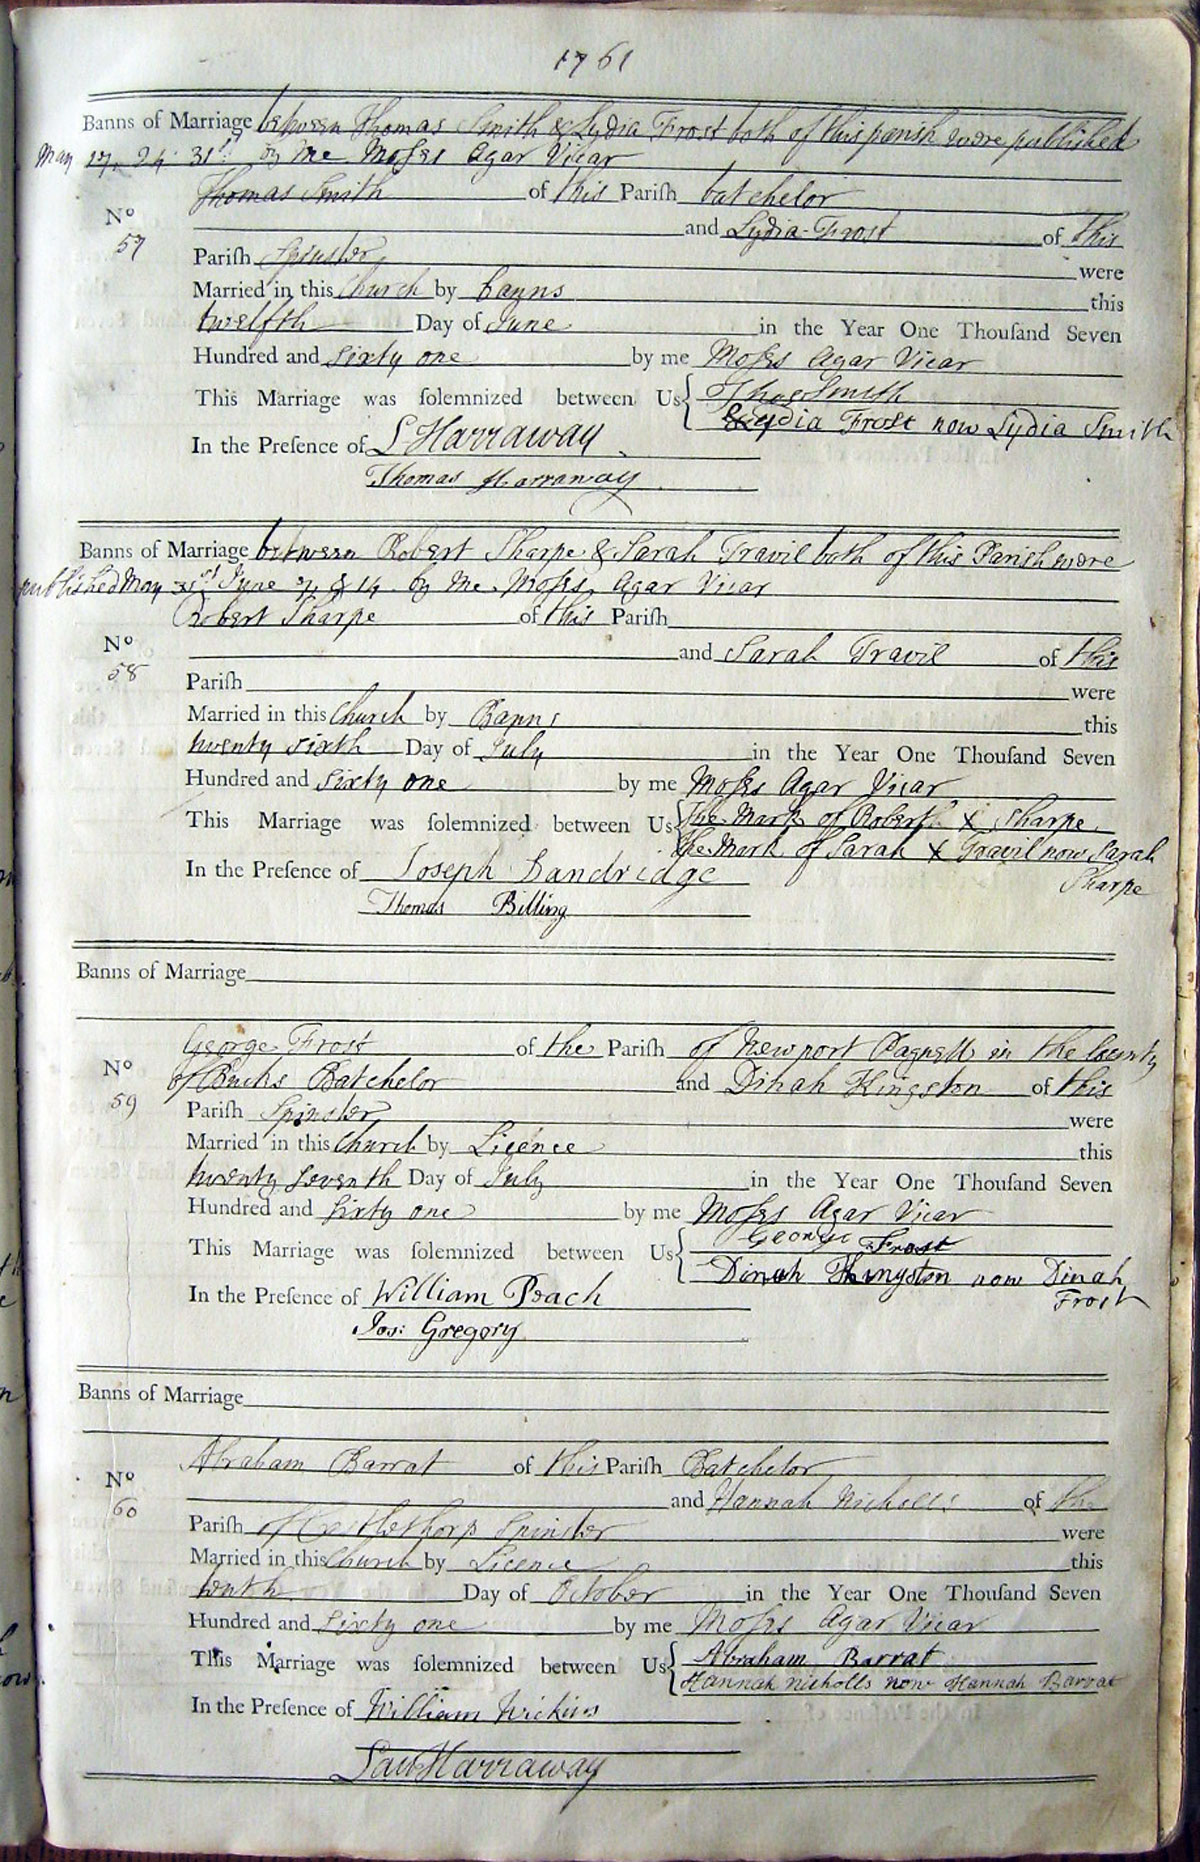 1761
Banns of Marriage between Thomas Smith & Lydia Frost both of this parish were published
May 17, 24 31st by me Moses Agar Vicar
Thomas Smith of this Pariſh batchelor
No 57
and Lydia Frost of this
Pariſh Spinster were
Married in this Church by banns this
twelfth Day of June in the Year One Thouſand Seven
Hundred and sixty one by me Moses Agar Vicar
This Marriage was ſolemnized between Us Thos Smith
Lydia Frost now Lydia Smith
In the Preſence of L Harraway
Thomas Harraway
Banns of Marriage between Robert Sharpe & Sarah Travil both of this Parish were
published May 31st June 7, & 14 by me Moses Agar Vicar
Robert Sharpe of this Pariſh
No 58
and Sarah Travil of this
Pariſh were
Married in this Church by Banns this
twenty sixth Day of July in the Year One Thouſand Seven
Hundred and sixty one by me Moses Agar Vicar
This Marriage was ſolemnized between Us The Mark of Robert X Sharpe
the Mark of Sarah X Travil now Sarah
Sharpe
In the Preſence of Joseph Bandridge
Thomas Billing
Banns of Marriage
George Frost of the Pariſh of Newport Pagnell in the County
No 59
of Bucks Batchelor and Dinah Kingston of this
Pariſh Spinster were
Married in this Church by Licence this
twenty seventh Day of July in the Year One Thouſand Seven
Hundred and sixty one by me Moses Agar Vicar
This Marriage was ſolemnized between Us George Frost
Dinah Kingston now Dinah
Frost
In the Preſence of William Peach
Jos: Gregory
Banns of Marriage
Abraham Barrat of this Pariſh Batchelor
No 60
and Hannah Nicholls of the
Pariſh of Castlethorp Spinster were
Married in this Church by Licence this
tenth Day of October in the Year One Thouſand Seven
Hundred and sixty one by me Moses Agar Vicar
This Marriage was ſolemnized between Us Abraham Barrat
Hannah nicholls now Hannah Barrat
In the Preſence of William Wickins
Law Harraway